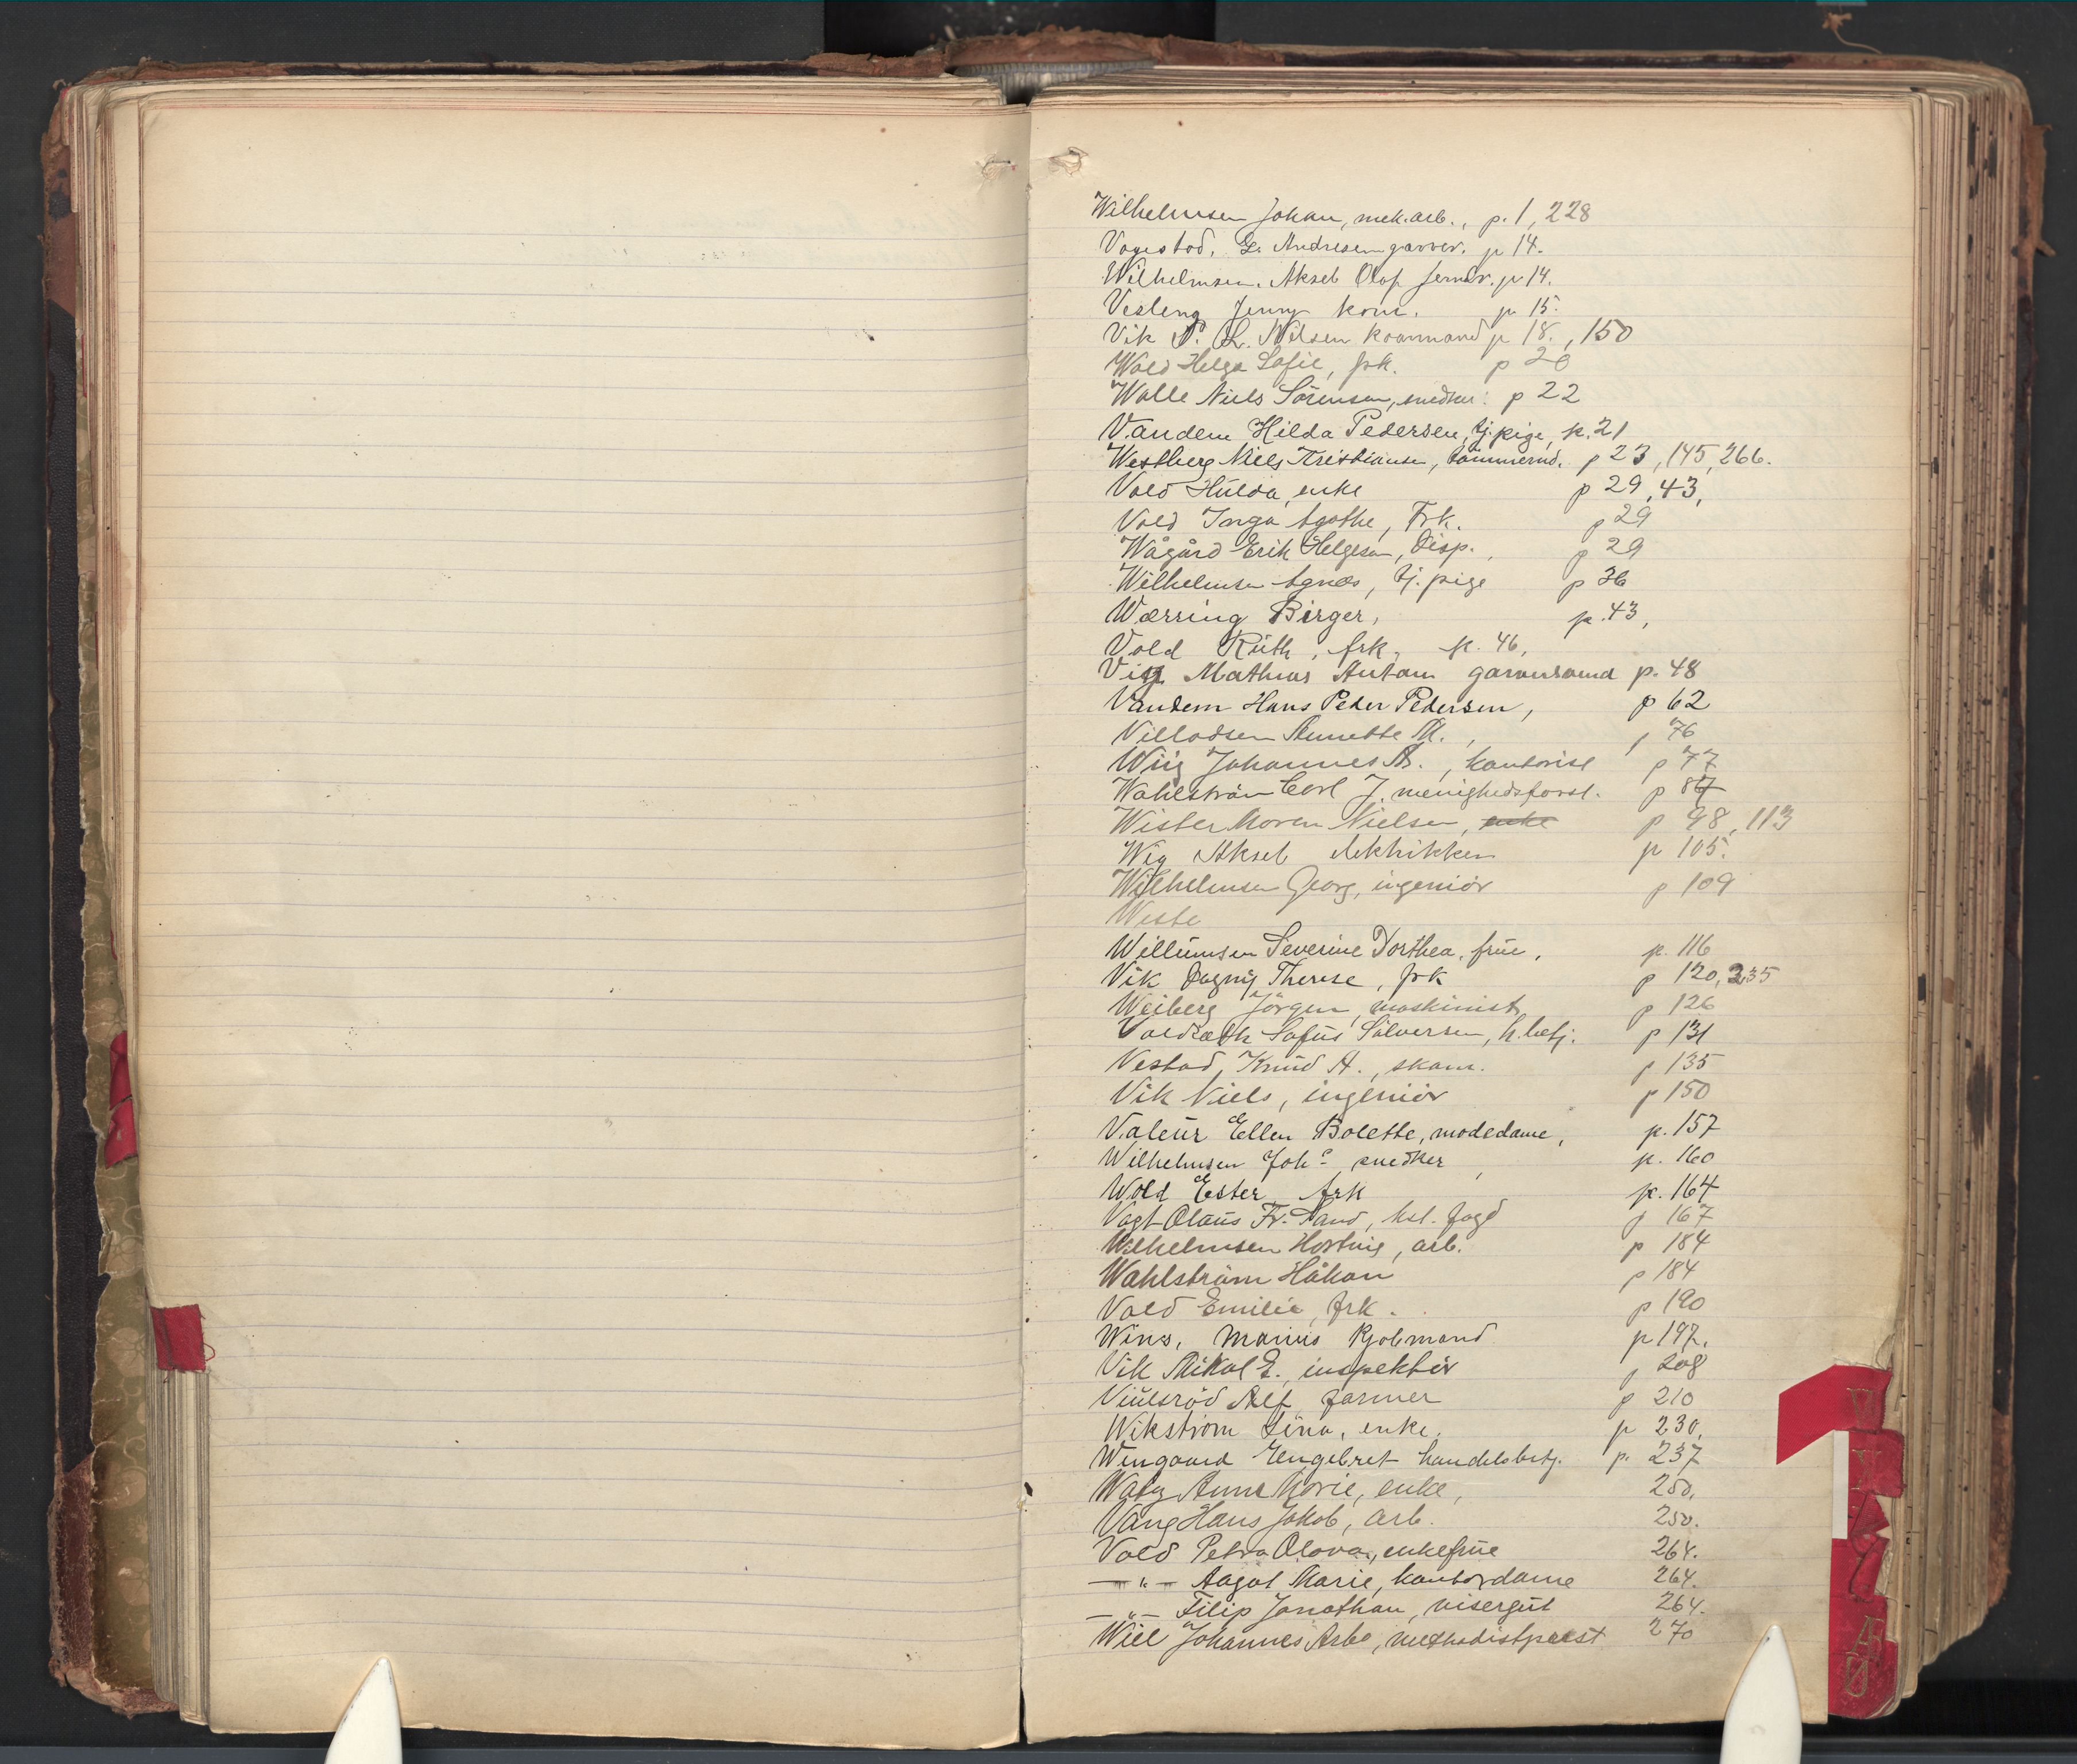 Wilhelmsen Johan, mek.arb., p. 1, 228
Vagestad, G. Andresen garver. p 14.
Wilhelmsen, Aksel Olaf p 14.
Vesleng Jenny kont. p 15.
Vik P. L. Nilsen kaarmand p 18., 150
Wold Helga Sofie, frk. p 20
Walle Niels Sörensen, snedker. p 22
Vandem Hilda Pedersen, tj. pige, p. 21
Westberg Niels Kristiansen, tömmermd. p 23, 145, 266.
Vold Hulda, enke p 29, 43,
Vold Inga Agathe, Frk. p 29
Wågård Erik Helgesen, disp., p 29
Wilhelmsen Agnes, tj. pige p 36
Wærring Birger, p. 43,
Vold Ruth, frk, p. 46,
Vig Mathias Antam garversvend p. 48
Vandem Hans Peder Pedersen, p 62
Villadsen Annette M., p 76
Wiig Johannes A., kontorist p 77
Wahlström Carl J. menighedsforst. p 87
Wister Maren Nielsen, enke p 98, 113
Wig Aksel elektrikker p 105.
Wilhelmsen Georg, ingeniör p 109
Weste
Willumsen Severine Dorthea, frue, p. 116
Vik Dagny Therese, frk p 120, 235
Weiberg Jörgen, maskinist, p 126
Sofus Sölversen, h.betj. p 131
Vestad, Knud A., skom. p 135
Vik Niels, ingeniör p 150
Valeur Ellen Bolette, modedame, p. 157
Wilhelmsen Johs snedker, p. 160
Wold Ester, frk p. 164
Vagt Olaus Fr. Sand, kst. foged p 167
Wilhelmsen Hartvig, arb. p 184
Wahlström Håkan p 184
Vold Emilie, frk. p 190
Wins, Marius Kjøbmand p 197.
Vik Mikal E., inspektör p 208
Viulsröd Alf, farmer p 210
Wikstrøm Lina, enke. p 230.
Wengaard Engebret handelsbetj. p. 237
Anne Marie, enke, 250.
Vang Hans Jakob, arb. 250.
Vold Petra Olava, enkefrue 264.
— " — Aagot Marie, kontordame 264.
— " — Filip Jonathan, visergut 264.
Wiel Johannes Arbo, methodistprest 270
V
A
Ø